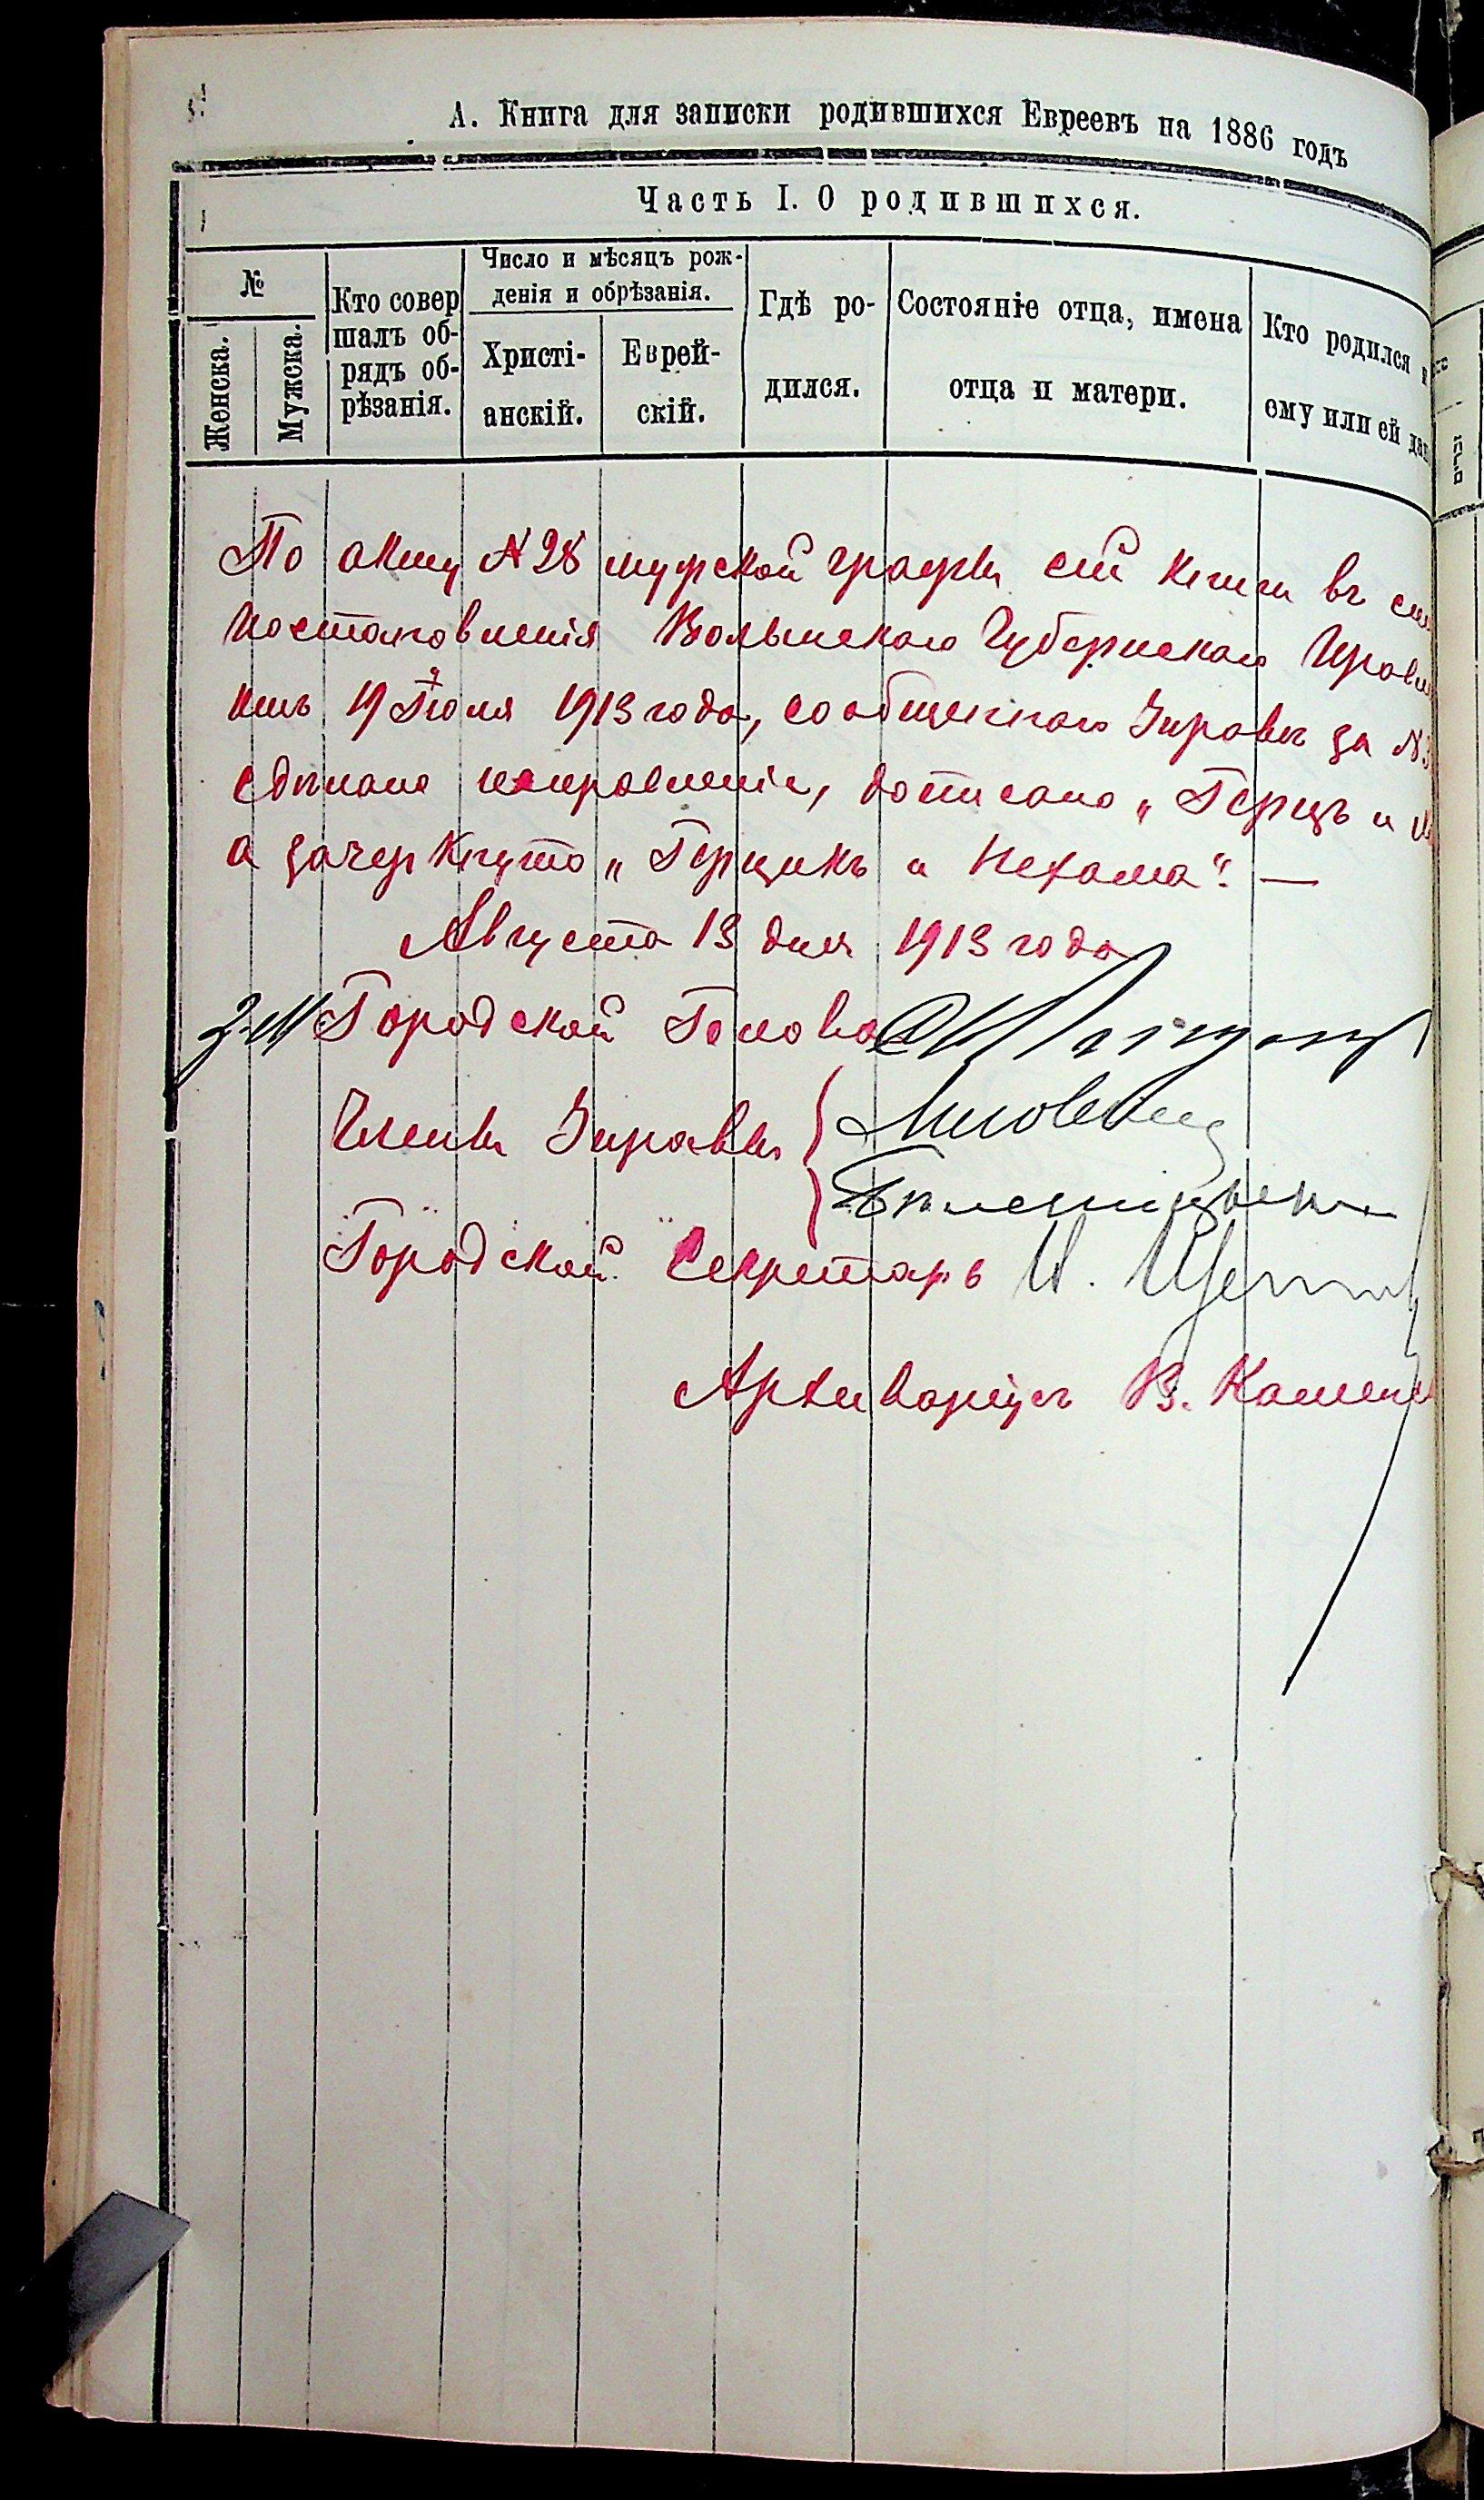 А. Книга для записки родившихся Евреевъ на 1886 годъ
Часть I. О родившихся.
№
Женска.
Мужска.
Кто совер
шалъ об-
рядъ об-
рѣзанія.
Число и мѣсяцъ рож-
денія и обрѣзанія.
Христі-
анскій.
Еврей-
скій.
Гдѣ ро-
дился.
Состояніе отца, имена
отца и матери.
Кто родился и
ему или ей дан
По акту № 28 мужской графы сей книги въ сил
постановленія Волынскаго Губернскаго Правл
нія 19 Іюля 1913 года, сообщеннаго Управѣ за №
сдѣлано исправленіе, дописано „Герцъ и
а зачеркнуто „Герцикъ и Нехама“. —
Августа 13 дня 1913 года
Городской Голова
Члены Управы
Городской Секретарь И.
Архиваріусъ В. Каменс